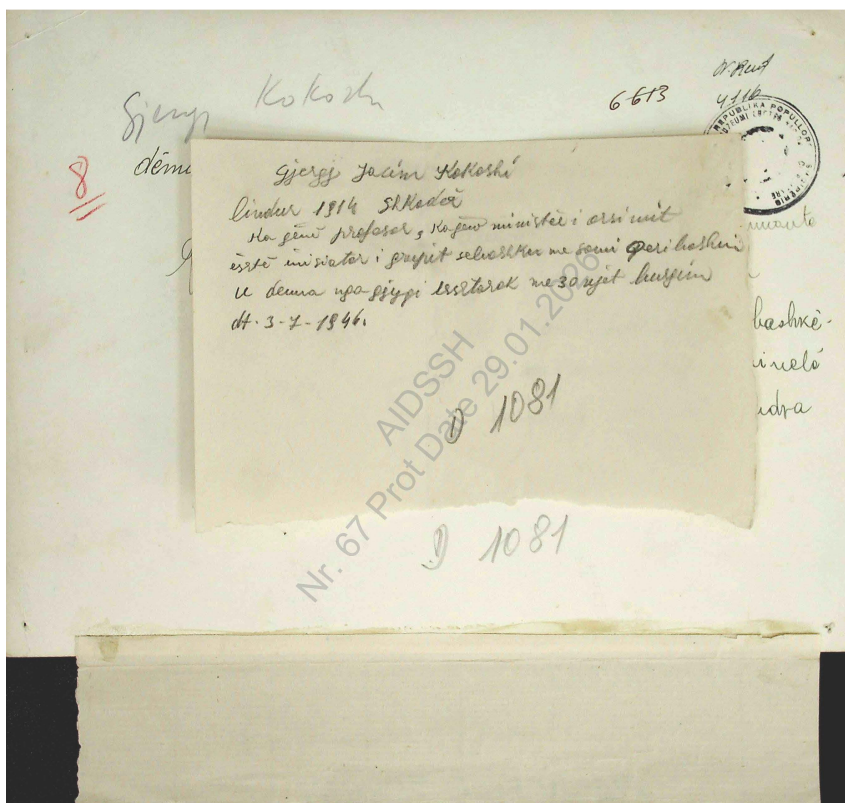 Gjergj Kokoshi
6613
4116
8
dëmu
REPUBLIKA POPULLORE
Gjergj Jacim Kokoshi
lindur 1914 Shkodër
Ka qënë profesor, ka qenë ministër i arsimit
është inisiator i grupit sebashku me Sami Qeribashin
U denua nga gjyqi ushtarak me 30 vjet burgim
dt. 3-7-1946.
bashkë-
D 1081
D 1081
AIDSSH
Nr. 67 Prot Date 29.01.2026